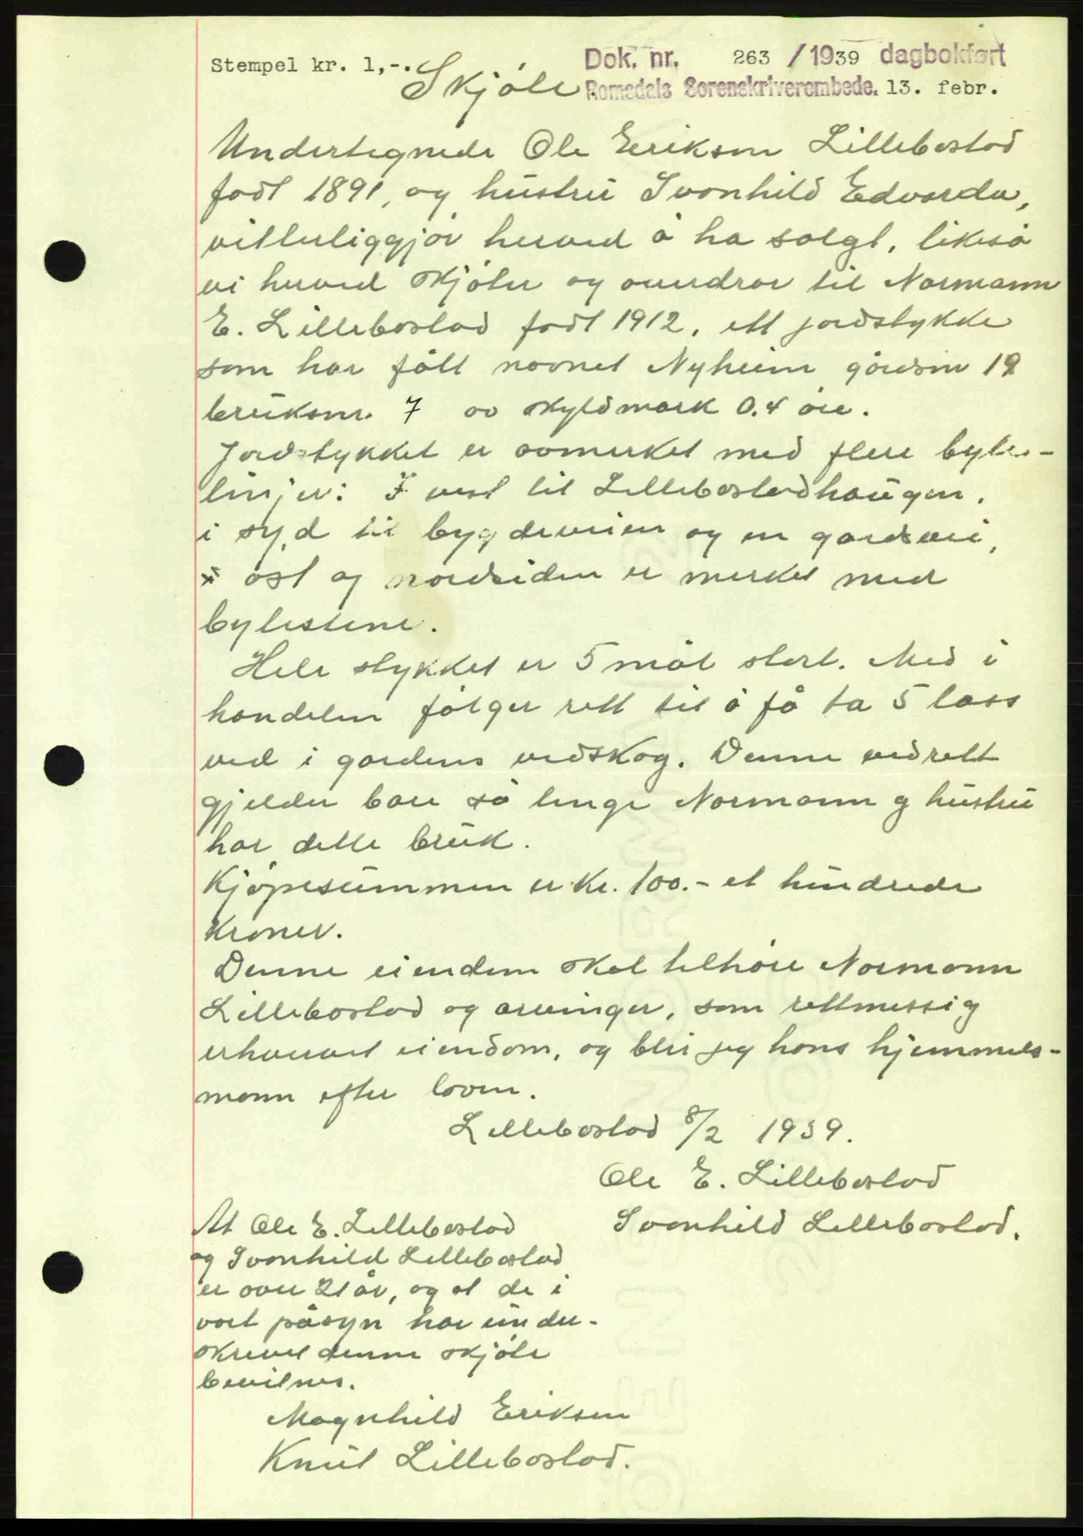 Stempel kr. 1,-. Dok. nr. 263 /1939 dagbokført
Skjöte Romsdals Sorenskriverembede. 13. febr.
Undertegnede Ole Eriksen Lillebostad
fodt 1891, og hustru Svanhild Edvarda,
vitterliggjör herved å ha solgt, likeså
vi herved skjöter og overdrar til Normann
E. Lillebostad fodt 1912, ett jordstykke
som har fått navnet Nyheim gårdsnr 19
bruksnr. 7 av skyldmark 0.4 öre.
Jordstykket er avmerket med flere byte-
linjer: I vest til Lillebostadhaugen,
i syd til bygdeveien og en gardsvei,
i öst og nordsiden er merket med
bytestene.
Hele stykket er 5 mål stort. Med i
handelen fölger rett til å få ta 5 lass
ved i gardens vedskog. Denne vedrett
gjelder bare så lenge Normann og hustru
har dette bruk.
Kjöpesummen er Kr. 100.- et hundrede
kroner.
Denne eiendom skal tilhöre Normann
Lillebostad og arvinger, som rettmessig
ervervet eiendom, og blir jeg hans hjemmels-
mann efter loven.
Lillebostad 8/2 1939.
Ole E. Lillebostad
Svanhild Lillebostad.
At Ole E. Lillebostad
og Svanhild Lillebostad
er over 21 år, og at de i
vort påsyn har under-
skrevet denne skjöte
bevitnes.
Magnhild Eriksen
Knut Lillebostad.